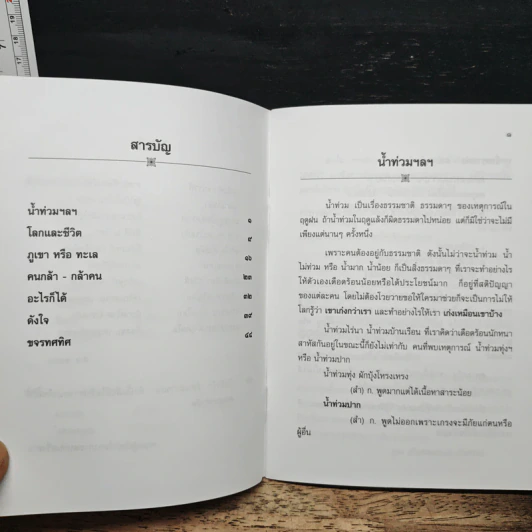 สารบัญ
น้ำท่วมฯลฯ ๑
โลกและชีวิต ๙
ภูเขา หรือ ทะเล ๑๖
คนกล้า - กล้าคน ๒๓
อะไรก็ได้ ๓๒
ดังใจ ๓๙
ขจรทศทิศ ๔๔
น้ำท่วมฯลฯ
น้ำท่วม เป็นเรื่องธรรมชาติ ธรรมดาๆ ของเหตุการณ์ใน
ฤดูฝน ถ้าน้ำท่วมในฤดูแล้งก็ผิดธรรมดาไปหน่อย แต่ก็มิใช่ว่าจะไม่มี
เพียงแต่นานๆ ครั้งหนึ่ง
เพราะคนต้องอยู่กับธรรมชาติ ดังนั้นไม่ว่าจะน้ำท่วม น้ำ
ไม่ท่วม หรือ น้ำมาก น้ำน้อย ก็เป็นสิ่งธรรมดาๆ ที่เราจะทำอย่างไร
ให้ตัวเองเดือดร้อนน้อยหรือได้ประโยชน์มาก ก็อยู่ที่สติปัญญา
ของแต่ละคน โดยไม่ต้องโวยวายขอให้ใครมาช่วยก็จะเป็นการไม่ให้
โลกรู้ว่า เขาเก่งกว่าเรา และทำอย่างไรให้เรา เก่งเหมือนเขาบ้าง
น้ำท่วมไร่นา น้ำท่วมบ้านเรือน ที่เราคิดว่าเดือดร้อนนักหนา
สาหัสกันอยู่ในขณะนี้ก็ยังไม่เท่ากับ คนที่พบเหตุการณ์ น้ำท่วมทุ่งฯ
หรือ น้ำท่วมปาก
น้ำท่วมทุ่ง ผักบุ้งโหรงเหรง
(สำ) ก. พูดมากแต่ได้เนื้อหาสาระน้อย
น้ำท่วมปาก
(สำ) ก. พูดไม่ออกเพราะเกรงจะมีภัยแก่ตนหรือ
ผู้อื่น